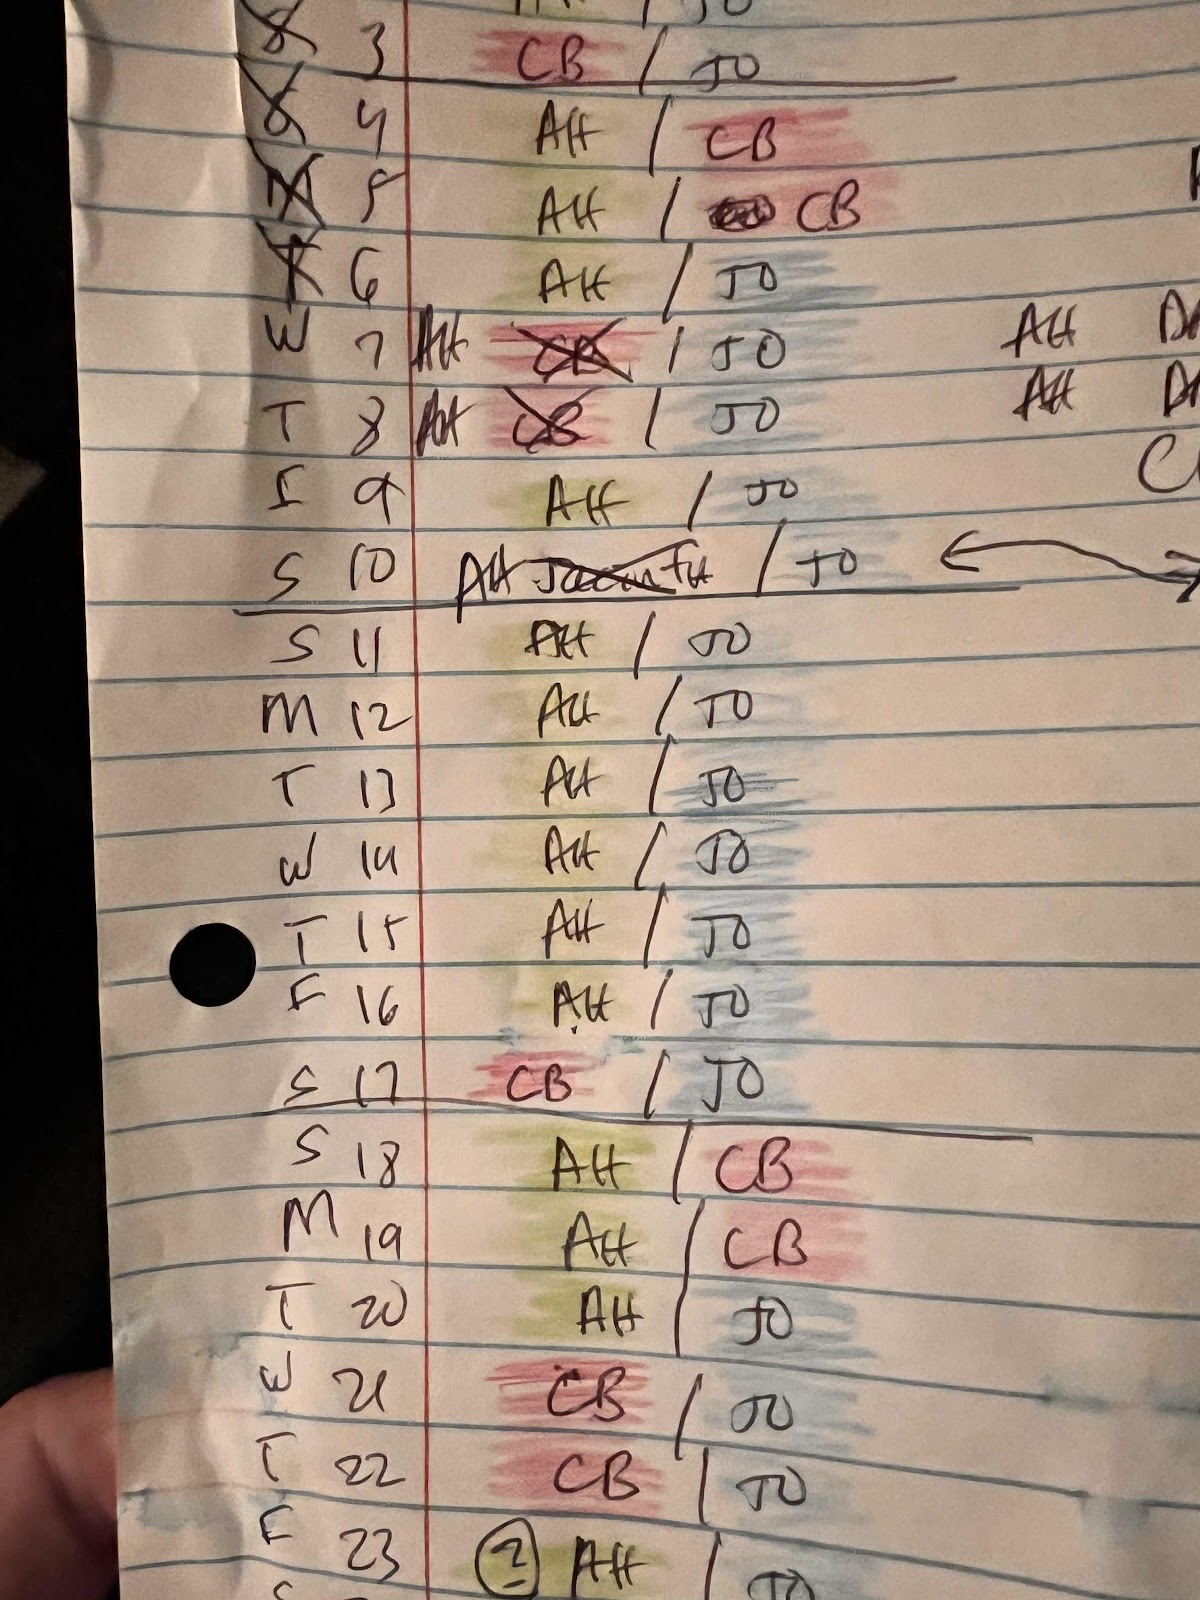 AH / JO
S 3 CB / JO
S 4 AH / CB
M 5 AH / CB
T 6 AH / JO
W 7 AH CB / JO AH
T 8 AH CB / JO AH
F 9 AH / JO
S 10 AH Jacinth / JO
S 11 AH / JO
M 12 AH / JO
T 13 AH / JO
W 14 AH / JO
T 15 AH / JO
F 16 AH / JO
S 17 CB / JO
S 18 AH / CB
M 19 AH / CB
T 20 AH / JO
W 21 CB / JO
T 22 CB / JO
F 23 ? AH / JO
S